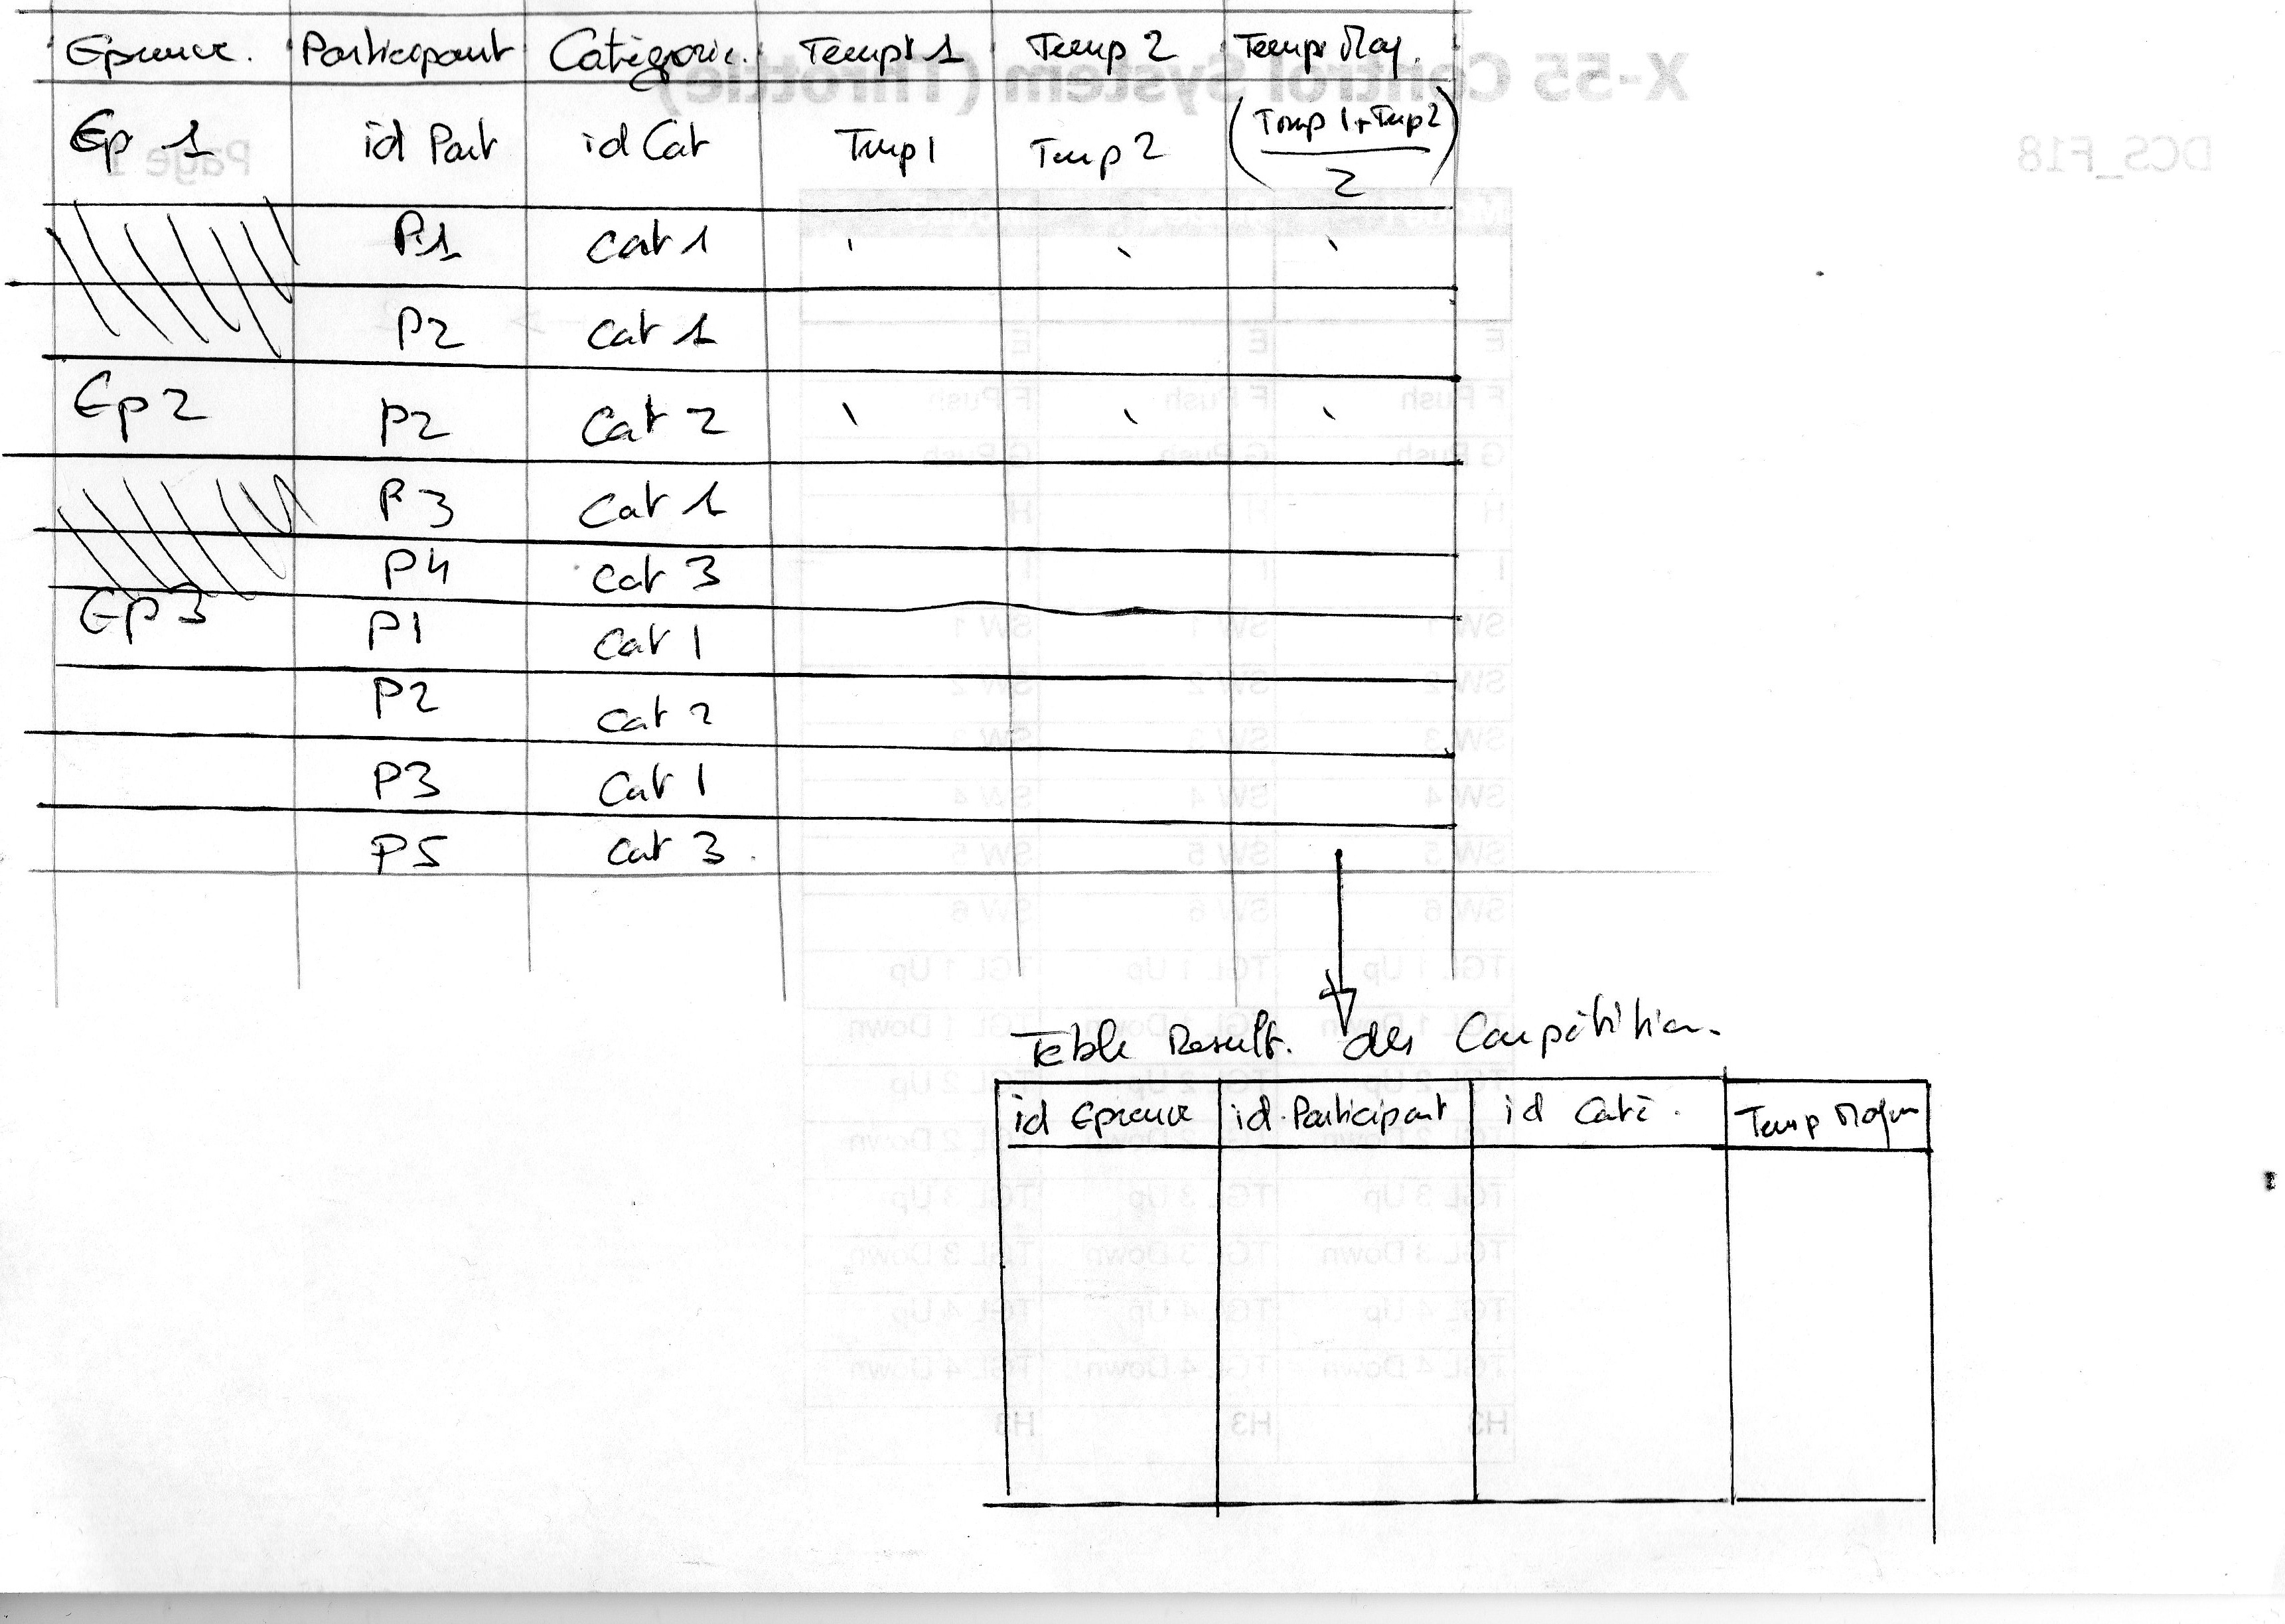 Epreuve. Participant Catégorie. Temps 1 Temp 2 Temps Moy.
Ep 1 id Part id Cat Tmp1 Tmp 2 (Tmp 1 + Tmp 2 / 2)
P1 Cat 1
P2 Cat 1
Ep 2 P2 Cat 2
P3 Cat 1
P4 Cat 3
Ep 3 P1 Cat 1
P2 Cat 2
P3 Cat 1
P5 Cat 3
Table Result. des Compétition.
id Epreuve id Participant id Caté. Temp Moyen
X-55 Control System (Throttle)
DCS_F18 Page 1
E E E
F Push F Push F Push
G Push G Push G Push
H H H
I I I
SW 1 SW 1 SW 1
SW 2 SW 2 SW 2
SW 3 SW 3 SW 3
SW 4 SW 4 SW 4
SW 5 SW 5 SW 5
SW 6 SW 6 SW 6
TGL 1 Up TGL 1 Up TGL 1 Up
TGL 1 Down TGL 1 Down TGL 1 Down
TGL 2 Up TGL 2 Up TGL 2 Up
TGL 2 Down TGL 2 Down TGL 2 Down
TGL 3 Up TGL 3 Up TGL 3 Up
TGL 3 Down TGL 3 Down TGL 3 Down
TGL 4 Up TGL 4 Up TGL 4 Up
TGL 4 Down TGL 4 Down TGL 4 Down
H3 H3 H3